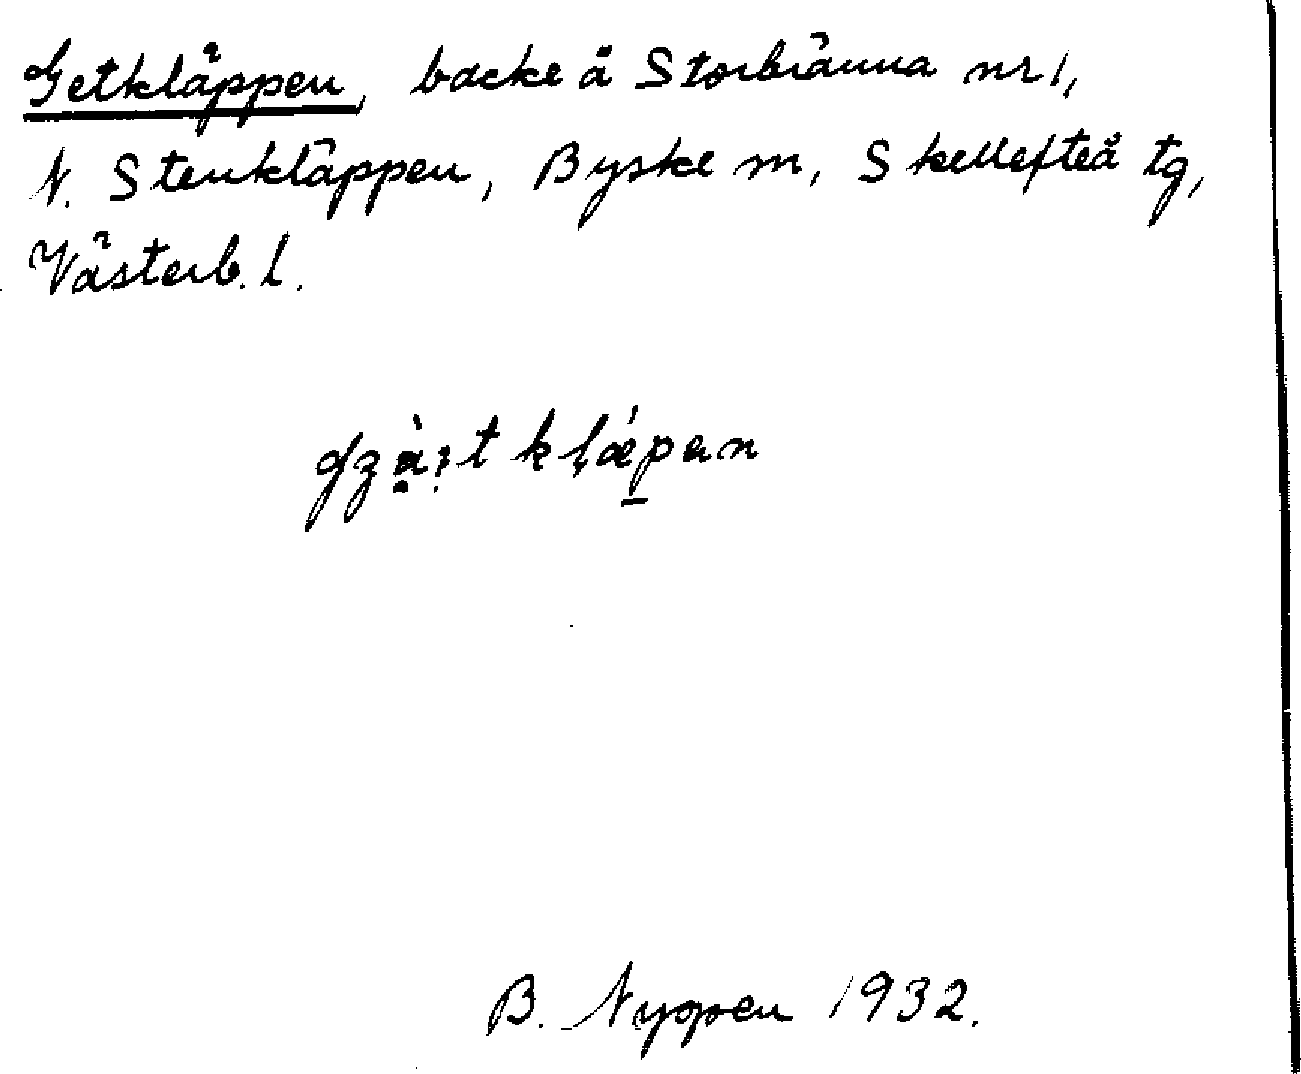 Getkläppen, backe å Storbränna nr 1,
N. Stenkläppen, Byske sn, Skellefteå tg,
Västerb. l.
B. Nygren 1932.